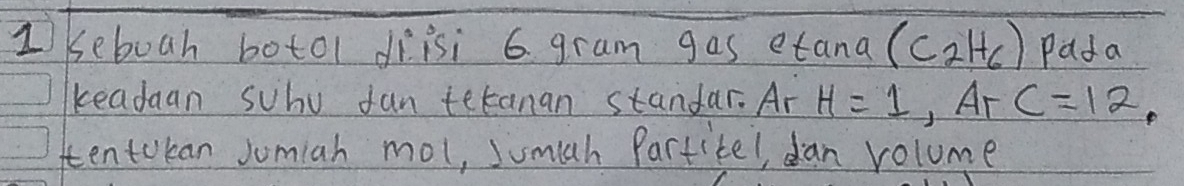 1 Sebuah botol diisi 6 gram gas etana (C2H6) pada
keadaan suhu dan tekanan standar. Ar H = 1, Ar C = 12.
tentukan Jumlah mol, Jumlah Partikel, dan volume